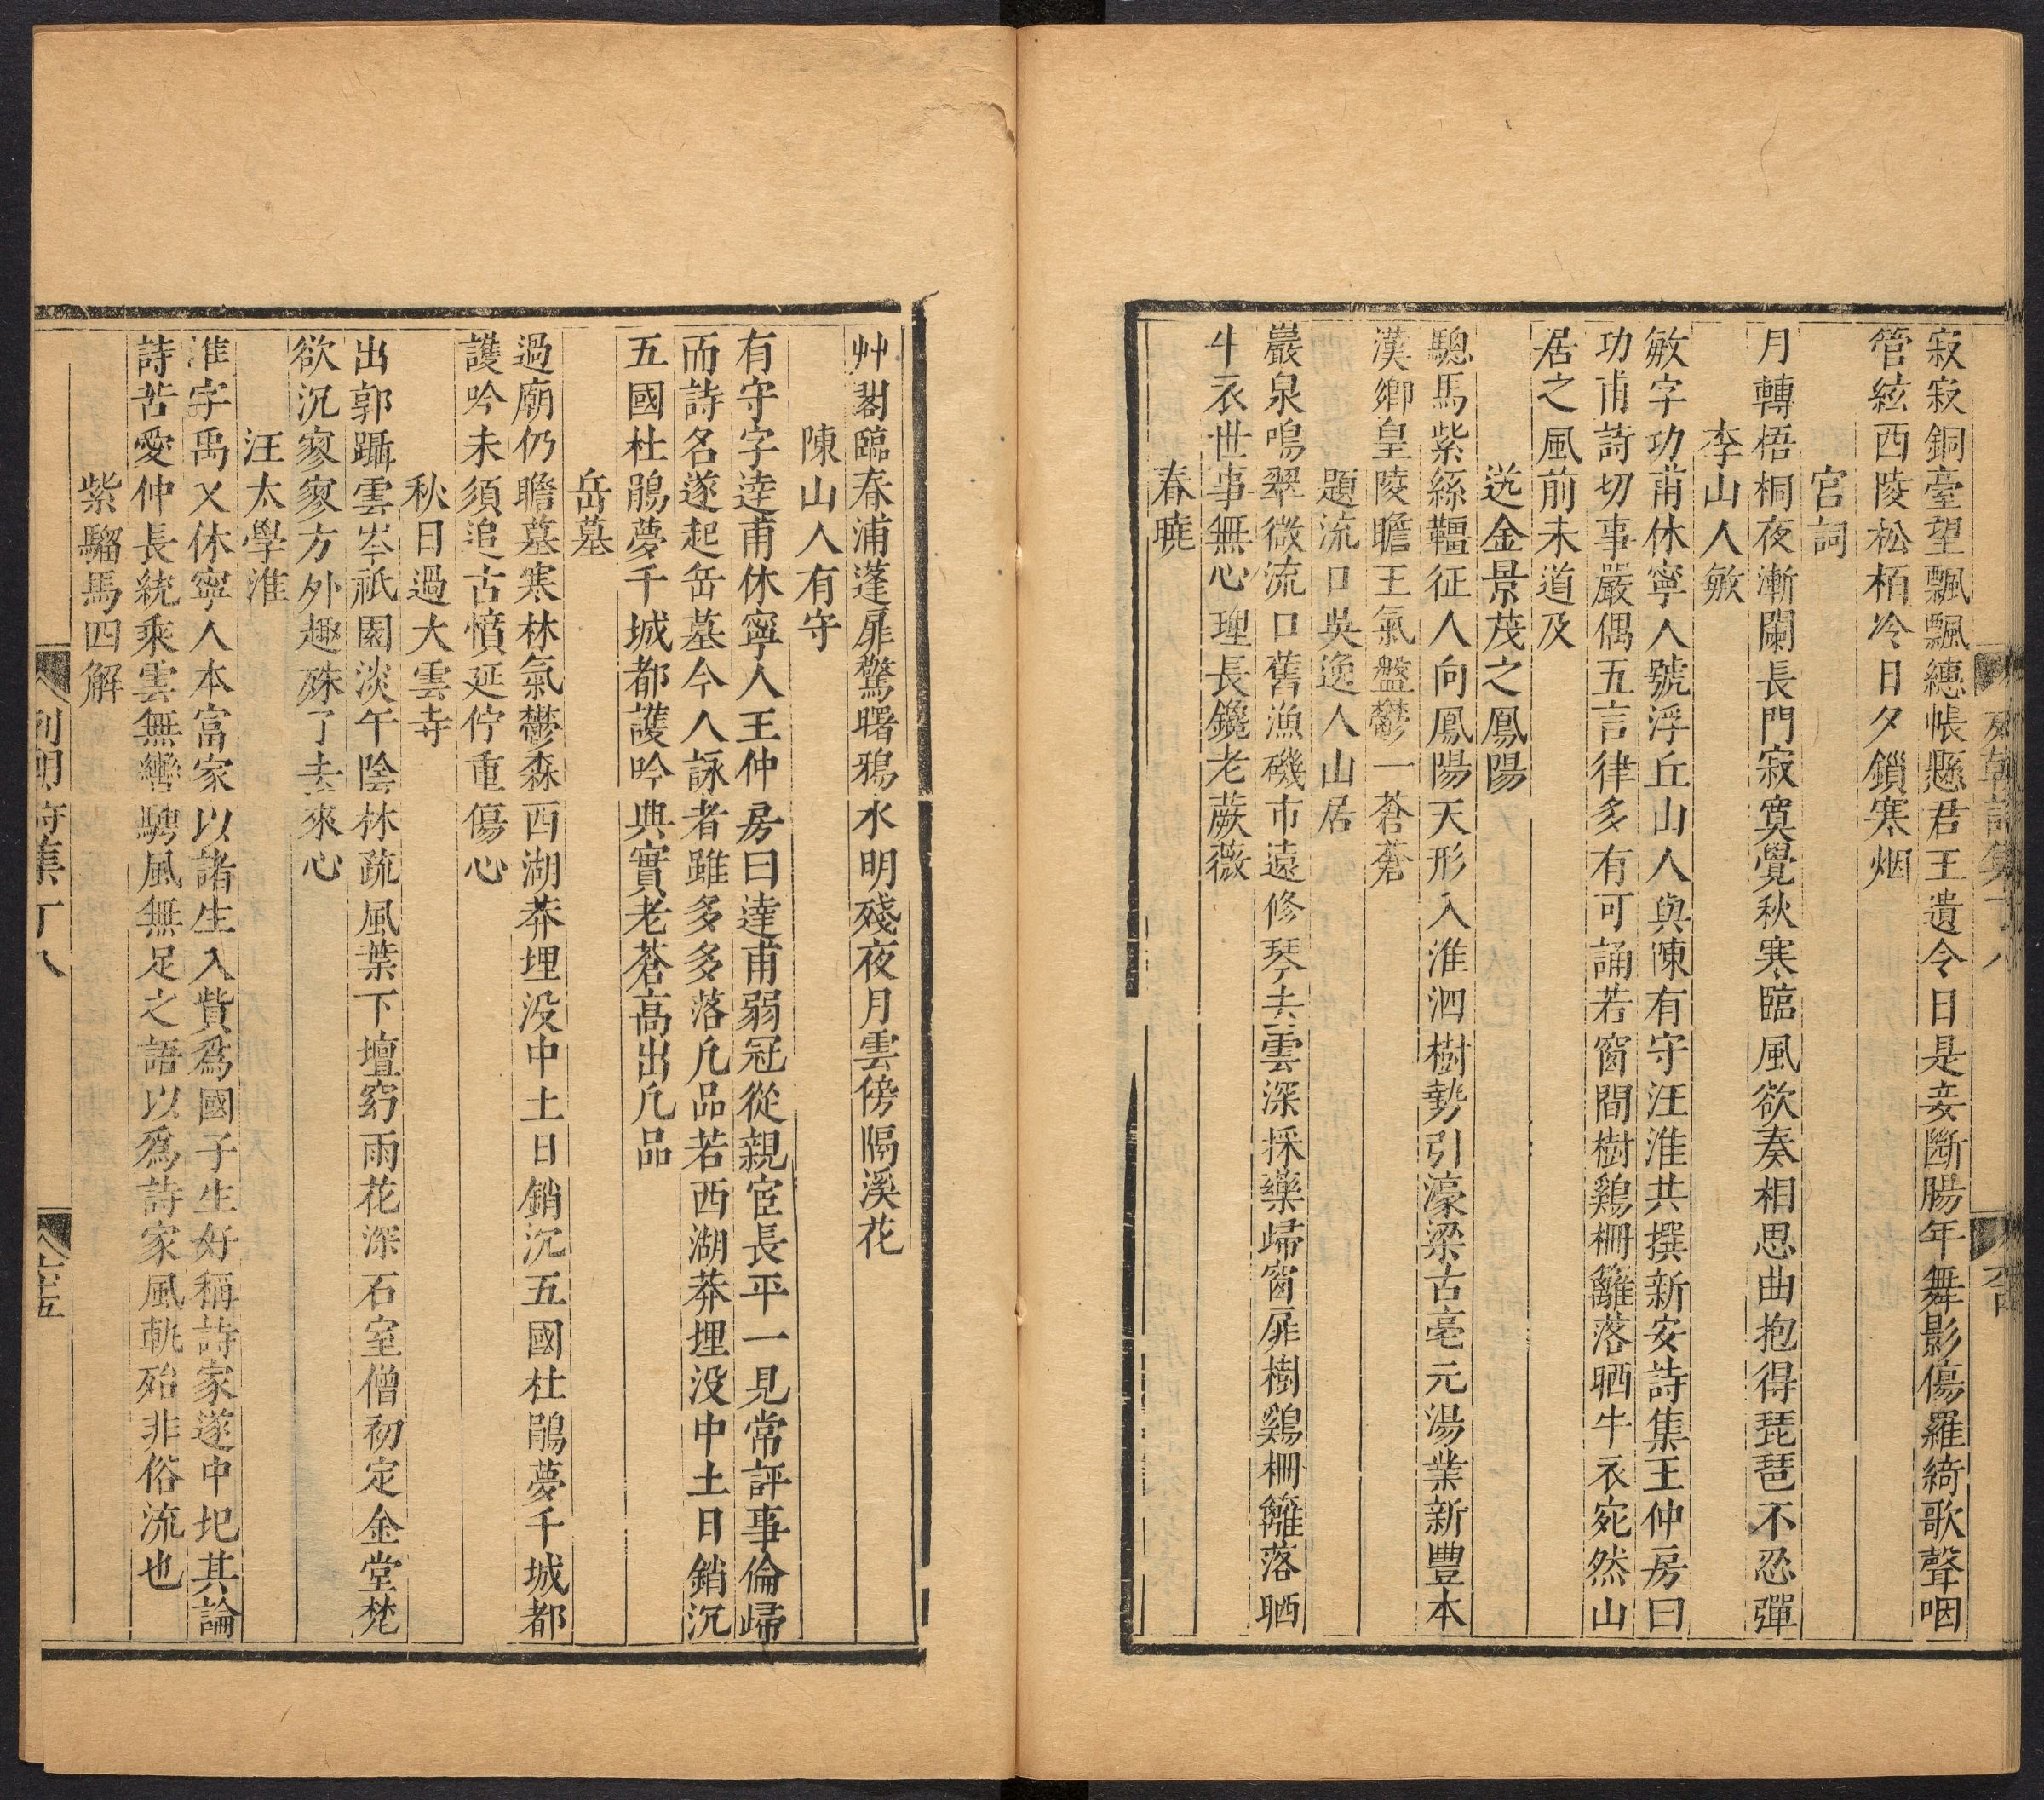 寂寂銅臺望飄飄繐帳懸君王遺令日是妾斷腸年舞影傷羅綺歌聲咽
管絃西陵松栢冷日夕鎖寒烟
宮詞
月轉梧桐夜漸闌長門寂寞覺秋寒臨風欲奏相思曲抱得琵琶不忍彈
李山人敏
敏字功甫休寧人號浮丘山人與陳有守汪淮共撰新安詩集王仲房曰
功甫詩切事嚴偶五言律多有可誦若窗間樹鷄柵籬落晒牛衣宛然山
居之風前未道及
送金景茂之鳳陽
驄馬紫絲韁征人向鳳陽天形入淮泗樹勢引濠梁古亳元湯業新豐本
漢鄉皇陵瞻王氣盤鬱一蒼蒼
題流口吳逸人山居
巖泉鳴翠微流口舊漁磯市遠修琴去雲深採藥歸窗扉樹鷄柵籬落晒
牛衣世事無心理長鑱老蕨薇
春曉
艸閣臨春浦蓬扉驚曙鴉水明殘夜月雲傍隔溪花
陳山人有守
有守字達甫休寧人王仲房曰達甫弱冠從親宦長平一見常評事倫歸
而詩名遂起岳墓今人詠者雖多多落凡品若西湖莽埋没中土日銷沉
五國杜鵑夢千城都護吟典實老蒼高出凡品
岳墓
過廟仍瞻墓寒林氣鬱森西湖莽埋没中土日銷沉五國杜鵑夢千城都
護吟未須追古憤延佇重傷心
秋日過大雲寺
出郭躡雲岑祇園淡午陰林疏風葉下壇窮雨花深石室僧初定金堂梵
欲沉寥寥方外趣殊了去來心
汪太學淮
淮字禹乂休寧人本富家以諸生入貲爲國子生好稱詩家遂中圮其論
詩苦愛仲長統乘雲無轡騁風無足之語以爲詩家風軌殆非俗流也
紫騮馬四解
列朝詩集丁八